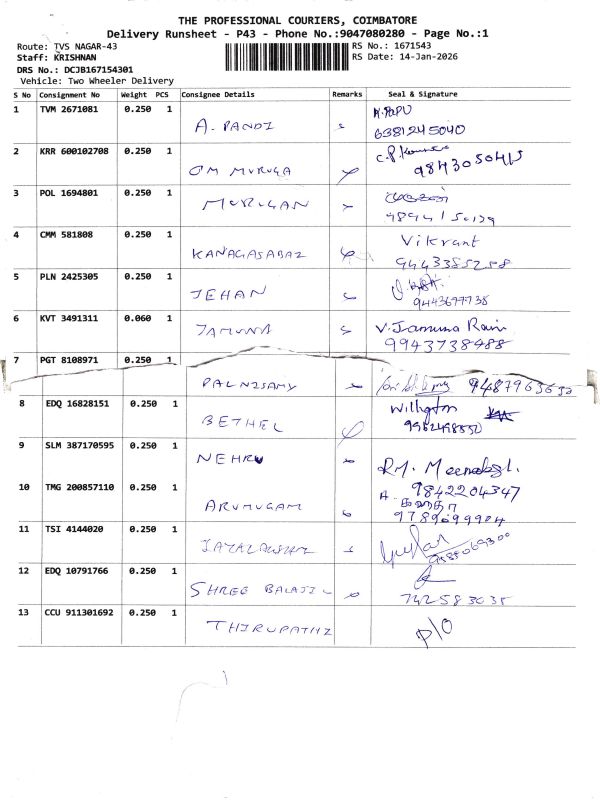 THE PROFESSIONAL COURIERS, COIMBATORE
Delivery Runsheet - P43 - Phone No.:9047080280 - Page No.:1
Route: TVS NAGAR-43
RS No.: 1671543
Staff: KRISHNAN
RS Date: 14-Jan-2026
DRS No.: DCJB167154301
Vehicle: Two Wheeler Delivery
S No Consignment No Weight PCS Consignee Details Remarks Seal & Signature
1 TVM 2671081 0.250 1
A. PANDI
6381245040
2 KRR 600102708 0.250 1
OM MURUGA
3 POL 1694801 0.250 1
MURUGAN
4 CMM 581808 0.250 1
Vikrant
KANAGASABAI
9443385258
5 PLN 2425305 0.250 1
JEHAN
9443677738
6 KVT 3491311 0.060 1
JAMUNA V. Jamuna Rani
9943738488
7 PGT 8108971 0.250 1
PALNISAMY
8 EDQ 16828151 0.250 1
BETHEL
9 SLM 387170595 0.250 1
NEHRU
10 TMG 200857110 0.250 1 9842204347
ARUMUGAM
11 TSI 4144020 0.250 1
12 EDQ 10791766 0.250 1
SHREE BALAJI
13 CCU 911301692 0.250 1
THIRUPATHI
P/O